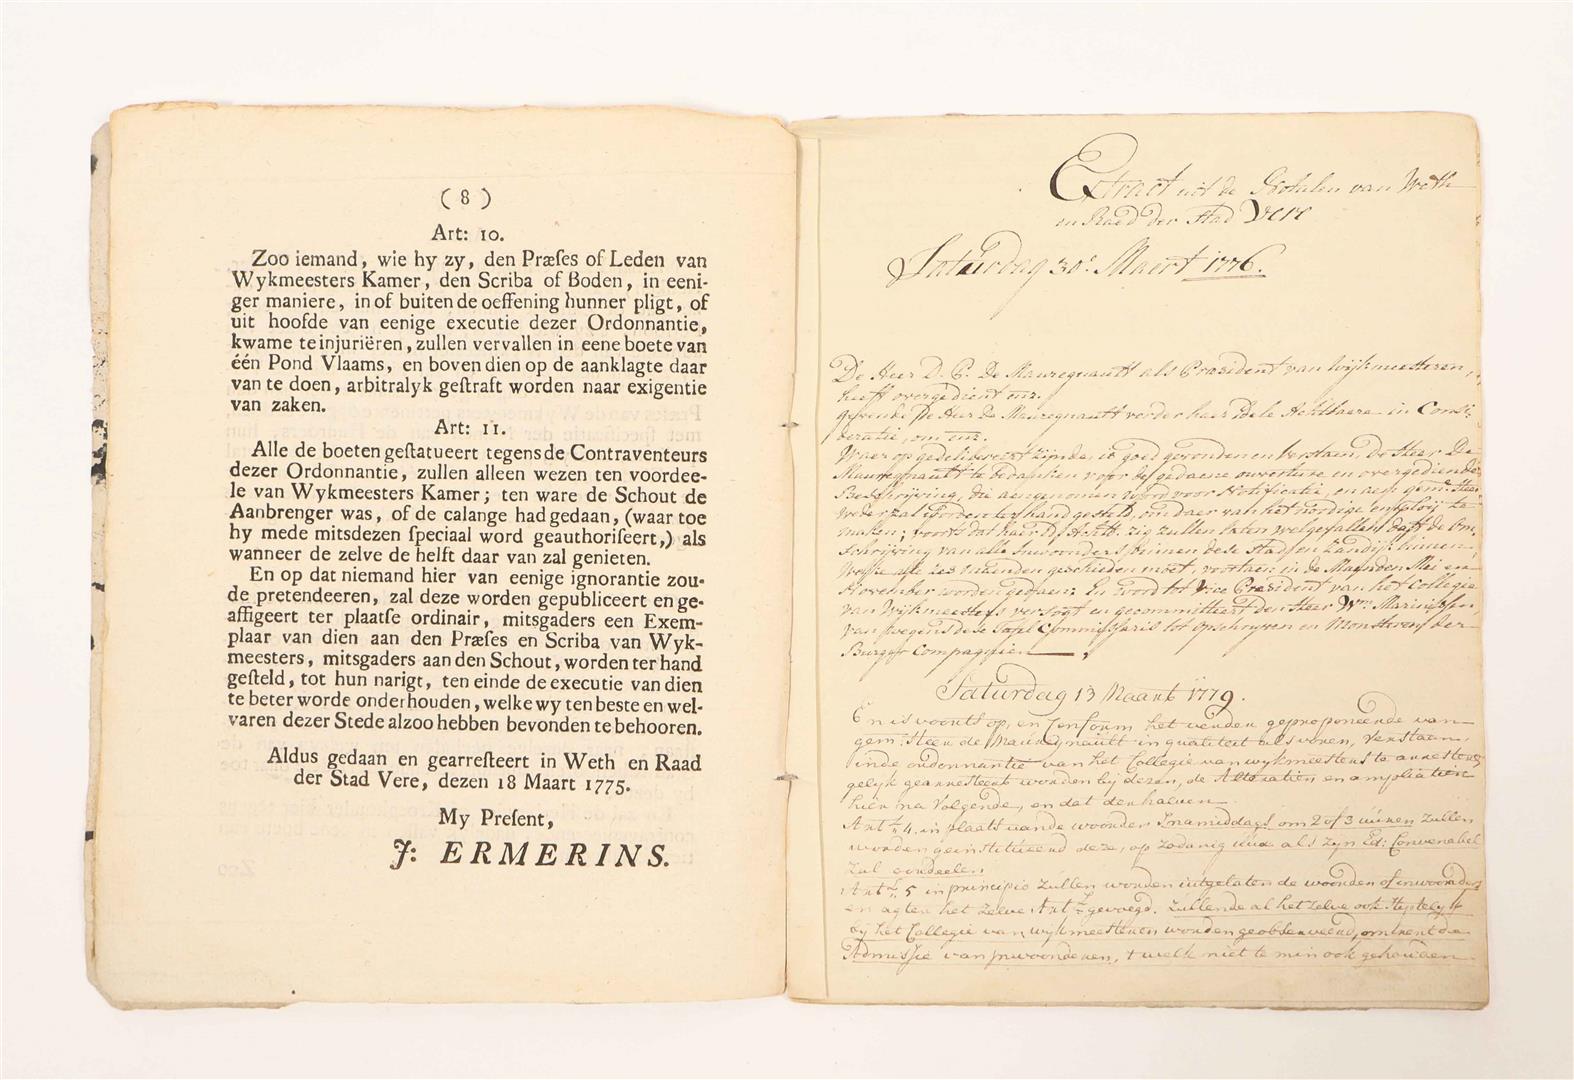 ( 8 )
Art: 10.
Zoo iemand, wie hy zy, den Præſes of Leden van
Wykmeesters Kamer, den Scriba of Boden, in eeni-
ger maniere, in of buiten de oeffening hunner pligt, of
uit hoofde van eenige executie dezer Ordonnantie,
kwame te injuriëren, zullen vervallen in eene boete van
één Pond Vlaams, en boven dien op de aanklagte daar
van te doen, arbitralyk geſtraft worden naar exigentie
van zaken.
Art: 11.
Alle de boeten geſtatueert tegens de Contraventeurs
dezer Ordonnantie, zullen alleen wezen ten voordee-
le van Wykmeesters Kamer; ten ware de Schout de
Aanbrenger was, of de calange had gedaan, (waar toe
hy mede mitsdezen ſpeciaal word geauthoriſeert,) als
wanneer de zelve de helft daar van zal genieten.
En op dat niemand hier van eenige ignorantie zou-
de pretendeeren, zal deze worden gepubliceert en ge-
affigeert ter plaatſe ordinair, mitsgaders een Exem-
plaar van dien aan den Præſes en Scriba van Wyk-
meesters, mitsgaders aan den Schout, worden ter hand
geſteld, tot hun narigt, ten einde de executie van dien
te beter worde onderhouden, welke wy ten beste en wel-
varen dezer Stede alzoo hebben bevonden te behooren.
Aldus gedaan en gearreſteert in Weth en Raad
der Stad Vere, dezen 18 Maart 1775.
My Preſent,
J: ERMERINS.
Extract uit de Notulen van Weth
en Raed der Stad Vere
Saturdag 30e. Maert 1776.
De Heer D. C. De Mauregnault als President van Wijkmeesteren,
heeft overgedient enz.
De Heer de Mauregnault verder haer Edele Achtbaere in Consi-
deratie, om enz.
Waer op gedelibereert zijnde, is goed gevonden en verstaen, de Heer De
Mauregnault te bedanken voor de gedaene ouverture en overgediende
Beschrijving, die aengenomen word voor Notificatie, en aen gem: Heer
weder zal worden ter hand gesteld, om daer van het nodige emploij te
maken; voorts dat haer Ed: Achtb: zig zullen laten welgevallen, dat de Om-
schrijving van alle Inwoonders binnen dese Stad en Landijk binnen
Welke alle ses maenden geschieden moet, voortaen in de Maenden Mei en
November worden gedaen: En word tot Vice President van het Collegie
van Wijkmeesters versogt en gecommitteert den Heer Wm. Marinissen
van wegens dese Tafel Commissaris tot opschrijven en Monsteren der
Burger Compagnien
Saturdag 13 Maart 1779.
En is voorts op, en Conform het verder geproponeerde van
gem: Heer de Mauregnault in qualiteit als voren, verstaan,
in de ordonnantie van het Collegie van wykmeesters te arresteren
gelyk gearresteert worden by dezen, de Alteratien en ampliatien
hier na volgende, en dat derhalven
Artl. 4. in plaats van de woorden Snamiddags om 2 of 3 uuren zullen
worden geinstitueerd deze, op zodanig uur als zyn Ed: Convenabel
zal oordeelen
Artl. 5 in principio zullen worden uitgelaten de woorden of inwoonders
en agter het zelve Artl. gevoegd. Zullende al het zelve ook stiptelyk
by het Collegie van wykmeesteren worden geobserveerd, omtrent de
Admissie van inwoonderen, 't welk niet te min ook gehouden